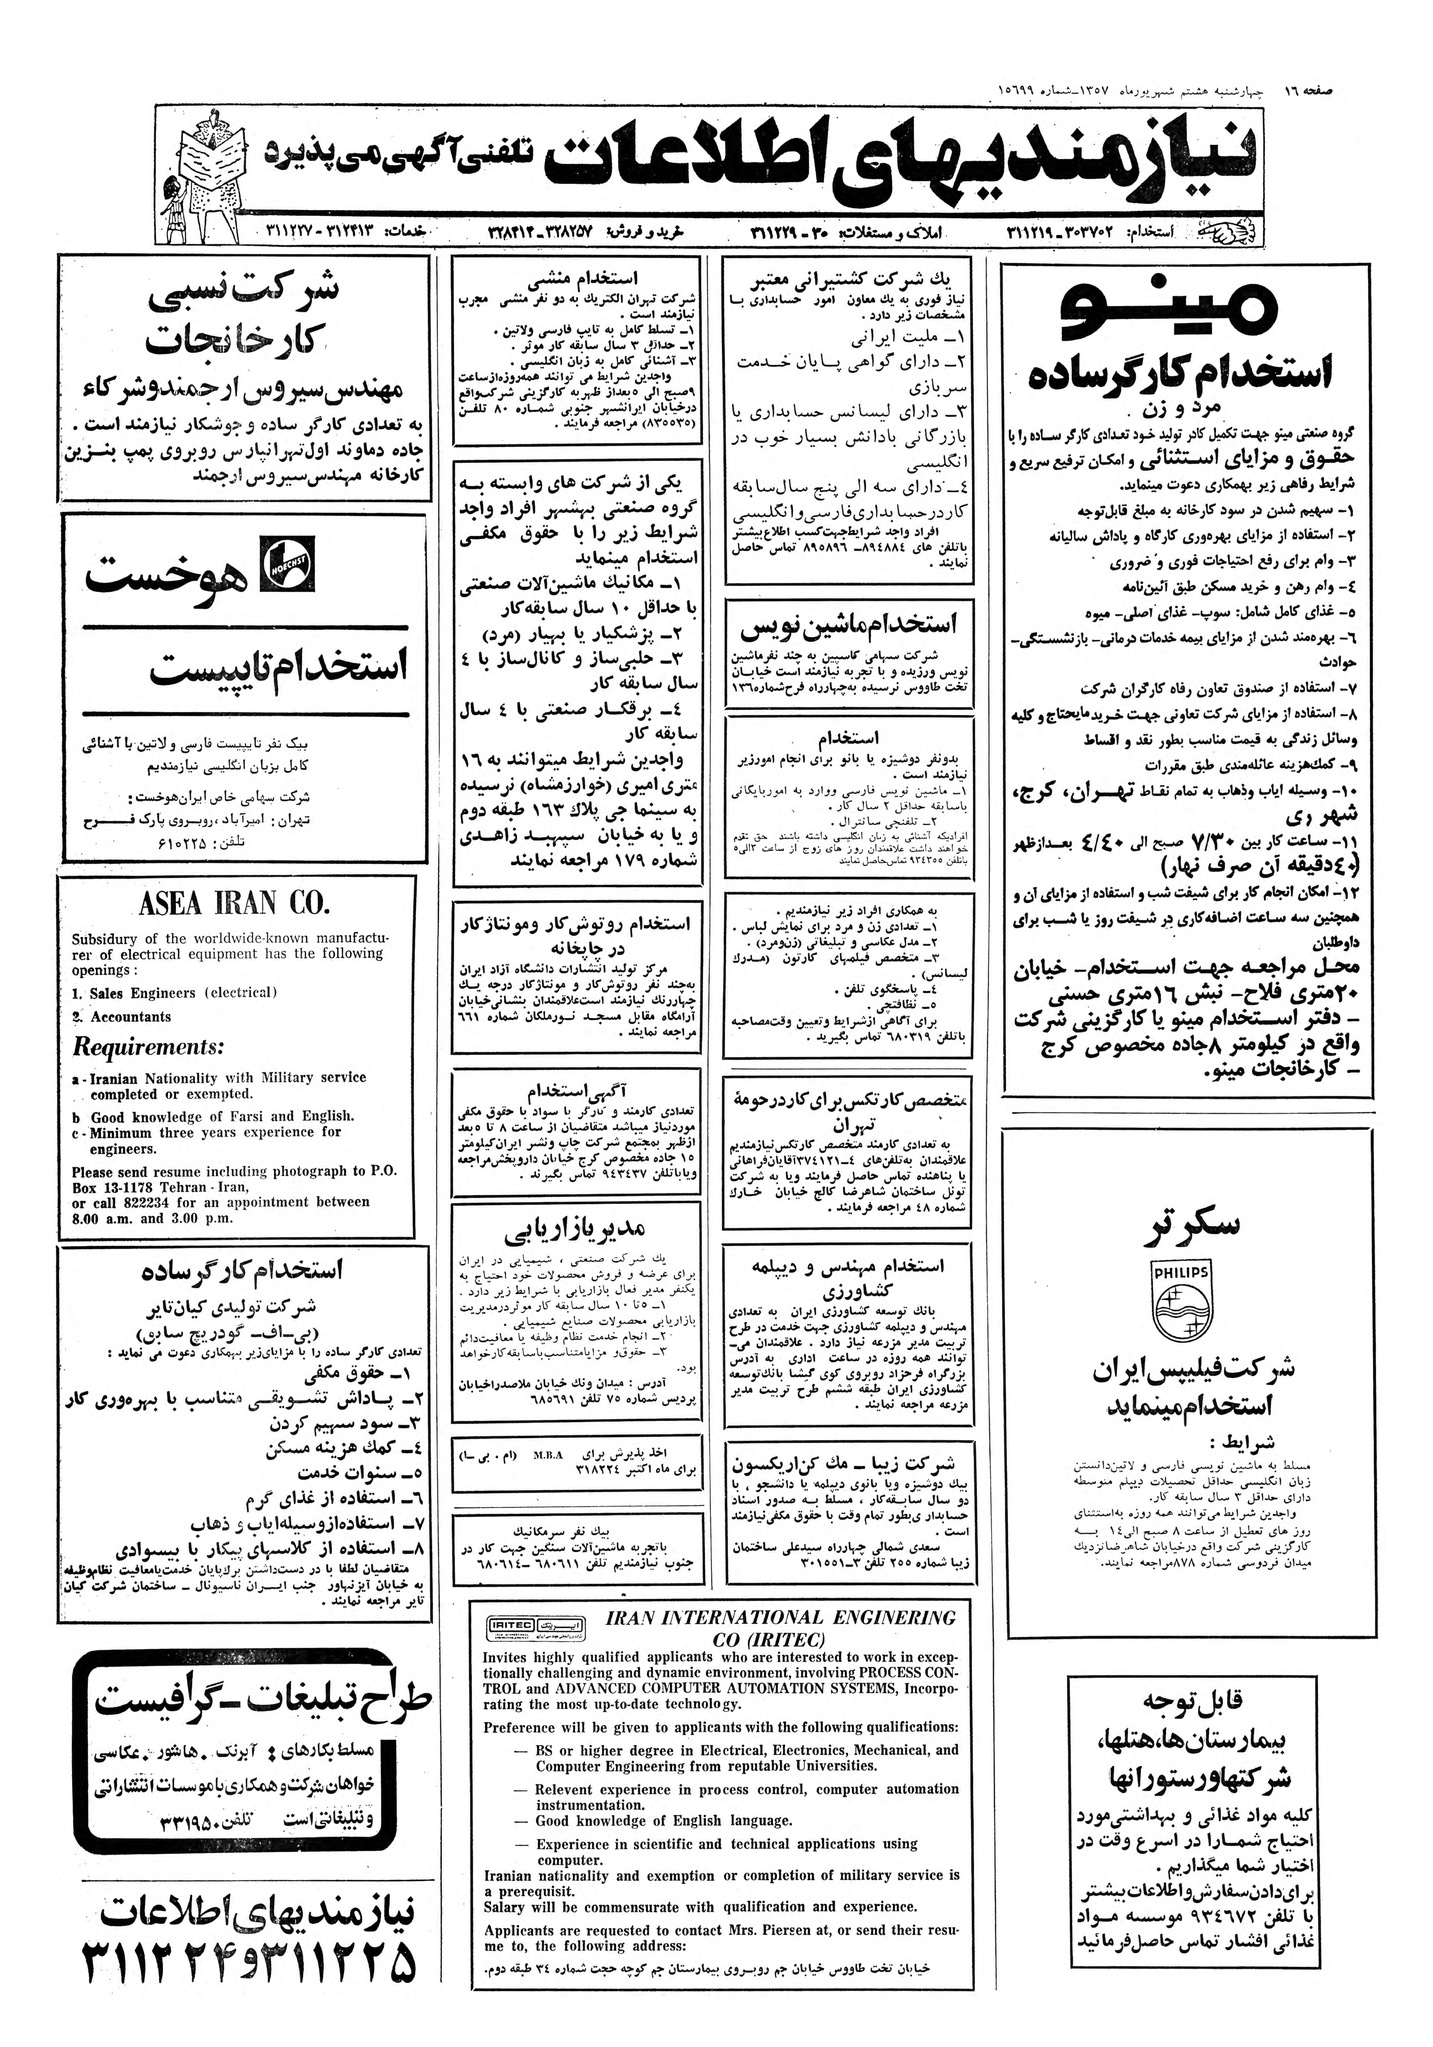 صفحه ۱۶ چهارشنبه هشتم شهریورماه ۱۳۵۷-شماره ۱۵۶۹۹
نیازمندیهای اطلاعات تلفنی آگهی می‌پذیرد
استخدام: ۳۰۳۷۰۲-۳۱۱۲۱۹ املاک و مستغلات: ۳۰-۳۱۱۲۲۹ خرید و فروش: ۳۲۸۲۵۷-۳۲۸۴۱۴ خدمات: ۳۱۲۴۱۳-۳۱۱۲۲۷
مینو
استخدام کارگر ساده
مرد و زن
گروه صنعتی مینو جهت تکمیل کادر تولید خود تعدادی کارگر ساده را با
حقوق و مزایای استثنائی و امکان ترفیع سریع و
شرایط رفاهی زیر بهمکاری دعوت مینماید.
۱- سهیم شدن در سود کارخانه به مبلغ قابل‌توجه
۲- استفاده از مزایای بهره‌وری کارگاه و پاداش سالیانه
۳- وام برای رفع احتیاجات فوری و ضروری
۴- وام رهن و خرید مسکن طبق آئین‌نامه
۵- غذای کامل شامل: سوپ- غذای اصلی- میوه
۶- بهره‌مند شدن از مزایای بیمه خدمات درمانی- بازنشستگی-
حوادث
۷- استفاده از صندوق تعاون رفاه کارگران شرکت
۸- استفاده از مزایای شرکت تعاونی جهت خرید مایحتاج و کلیه
وسائل زندگی به قیمت مناسب بطور نقد و اقساط
۹- کمک‌هزینه عائله‌مندی طبق مقررات
۱۰- وسیله ایاب وذهاب به تمام نقاط تهران، کرج،
شهر ری
۱۱- ساعت کار بین ۷/۳۰ صبح الی ۴/۴۰ بعدازظهر
(۴۰دقیقه آن صرف نهار)
۱۲- امکان انجام کار برای شیفت شب و استفاده از مزایای آن و
همچنین سه ساعت اضافه‌کاری در شیفت روز یا شب برای
داوطلبان
محل مراجعه جهت استخدام- خیابان
۲۰متری فلاح- نبش ۱۶متری حسنی
- دفتر استخدام مینو یا کارگزینی شرکت
واقع در کیلومتر ۸جاده مخصوص کرج
- کارخانجات مینو.
سکرتر
PHILIPS
شرکت فیلیپس ایران
استخدام مینماید
شرایط :
مسلط به ماشین نویسی فارسی و لاتین‌دانستن
زبان انگلیسی حداقل تحصیلات دیپلم متوسطه
دارای حداقل ۳ سال سابقه کار.
واجدین شرایط می‌توانند همه روزه به‌استثنای
روز های تعطیل از ساعت ۸ صبح الی۱۴ به
کارگزینی شرکت واقع درخیابان شاهرضانزدیک
میدان فردوسی شماره ۸۷۸مراجعه نمایند.
قابل توجه
بیمارستان‌ها، هتلها،
شرکتهاورستورانها
کلیه مواد غذائی و بهداشتی‌مورد
احتیاج شمارا در اسرع وقت در
اختیار شما میگذاریم .
برای‌دادن‌سفارش‌واطلاعات‌بیشتر
با تلفن ۹۳۴۶۷۲ موسسه مواد
غذائی افشار تماس حاصل‌فرمائید
یك شرکت کشتیرانی معتبر
نیاز فوری به یك معاون امور حسابداری با
مشخصات زیر دارد .
۱- ملیت ایرانی
۲- دارای گواهی پایان خدمت
سربازی
۳- دارای لیسانس حسابداری یا
بازرگانی بادانش بسیار خوب در
انگلیسی
۴- دارای سه الی پنج سال‌سابقه
کاردرحسابداری‌فارسی‌وانگلیسی
افراد واجد شرایط‌جهت‌کسب اطلاع‌بیشتر
باتلفن های ۸۹۴۸۸۴- ۸۹۵۸۹۶ تماس حاصل
نمایند .
استخدام ماشین نویس
شرکت سهامی کاسپین به چند نفرماشین
نویس ورزیده و با تجربه نیازمند است خیابان
تخت طاووس نرسیده به‌چهارراه فرح‌شماره۱۳۶
استخدام
بدونفر دوشیزه یا بانو برای انجام امورزیر
نیازمند است .
۱- ماشین نویس فارسی ووارد به اموربایگانی
باسابقه حداقل ۲ سال کار .
۲- تلفنچی سانترال .
افرادیکه آشنائی به زبان انگلیسی داشته باشند حق تقدم
خواهند داشت علاقمندان روز های زوج از ساعت ۳الی۵
باتلفن ۹۳۴۳۵۵ تماس‌حاصل نمایند
به همکاری افراد زیر نیازمندیم .
۱- تعدادی زن و مرد برای نمایش لباس .
۲- مدل عکاسی و تبلیغاتی (زن‌ومرد) .
۳- متخصص فیلمهای کارتون (مدرک
لیسانس) .
۴- پاسخگوی تلفن .
۵- نظافتچی .
برای آگاهی ازشرایط وتعیین وقت‌مصاحبه
باتلفن ۶۸۰۳۱۹ تماس بگیرید .
متخصص کارتکس برای کار در حومهٔ
تهران
به تعدادی کارمند متخصص کارتکس‌نیازمندیم
علاقمندان به‌تلفن‌های ۴-۳۷۴۱۲۱آقایان‌فراهانی
یا پناهنده تماس حاصل فرمایند ویا به شرکت
تونل ساختمان شاهرضا کالج خیابان خارک
شماره ۴۸ مراجعه فرمایند .
استخدام مهندس و دیپلمه
کشاورزی
بانك توسعه کشاورزی ایران به تعدادی
مهندس و دیپلمه کشاورزی جهت خدمت در طرح
تربیت مدیر مزرعه نیاز دارد . علاقمندان می-
توانند همه روزه در ساعت اداری به آدرس
بزرگراه فرحزاد روبروی کوی گیشا بانك‌توسعه
کشاورزی ایران طبقه ششم طرح تربیت مدیر
مزرعه مراجعه نمایند .
شرکت زیبا - مك کن‌اریکسون
بیك دوشیزه ویا بانوی دیپلمه یا دانشجو ، با
دو سال سابقه‌کار ، مسلط به صدور اسناد
حسابدار ی‌بطور تمام وقت با حقوق مکفی‌نیازمند
است .
سعدی شمالی چهارراه سیدعلی ساختمان
زیبا شماره ۲۵۵ تلفن ۳-۳۰۱۵۵۱
استخدام منشی
شرکت تهران الکتریك به دو نفر منشی مجرب
نیازمند است .
۱- تسلط کامل به تایپ فارسی ولاتین .
۲- حداقل ۳ سال سابقه کار موثر .
۳- آشنائی کامل به زبان انگلیسی .
واجدین شرایط می توانند همه‌روزه‌ازساعت
۹صبح الی ۵بعداز ظهربه کارگزینی شرکت‌واقع
درخیابان ایرانشهر جنوبی شماره ۸۰ تلفن
(۸۳۵۵۳۵) مراجعه فرمایند .
یکی از شرکت های وابسته به
گروه صنعتی بهشهر افراد واجد
شرایط زیر را با حقوق مکفی
استخدام مینماید
۱- مکانیك ماشین‌آلات صنعتی
با حداقل ۱۰ سال سابقه‌کار
۲- پزشکیار یا بهیار (مرد)
۳- حلبی‌ساز و کانال‌ساز با ۴
سال سابقه کار
۴- برقکار صنعتی با ۴ سال
سابقه کار
واجدین شرایط میتوانند به ۱۶
متری امیری (خوارزمشاه) نرسیده
به سینما جی پلاك ۱۶۳ طبقه دوم
و یا به خیابان سپهبد زاهدی
شماره ۱۷۹ مراجعه نمایند
استخدام روتوش‌کار ومونتاژکار
در چاپخانه
مرکز تولید انتشارات دانشگاه آزاد ایران
به‌چند نفر روتوش‌کار و مونتاژکار درجه یك
چهاررنك نیازمند است‌علاقمندان بنشانی‌خیابان
آرامگاه مقابل مسجد نورملکان شماره ۶۶۱
مراجعه نمایند .
آگهی استخدام
تعدادی کارمند و کارگر با سواد با حقوق مکفی
موردنیاز میباشد متقاضیان از ساعت ۸ تا ۵بعد
ازظهر بمجتمع شرکت چاپ ونشر ایران‌کیلومتر
۱۵ جاده مخصوص کرج خیابان داروپخش‌مراجعه
ویاباتلفن ۹۴۳۴۳۷ تماس بگیرند .
مدیر بازاریابی
یك شرکت صنعتی ، شیمیایی در ایران
برای عرضه و فروش محصولات خود احتیاج به
یکنفر مدیر فعال بازاریابی با شرایط زیر دارد .
۱- ۵تا ۱۰ سال سابقه کار موثردرمدیریت
بازاریابی محصولات صنایع شیمیایی .
۲- انجام خدمت نظام وظیفه یا معافیت‌دائم
۳- حقوق‌و مزایامتناسب‌باسابقه‌کارخواهد
بود.
آدرس : میدان ونك خیابان ملاصدراخیابان
پردیس شماره ۷۵ تلفن ۶۸۵۶۹۱
اخذ پذیرش برای M.B.A (ام . بی -ا)
برای ماه اکتبر ۳۱۸۲۲۴
بیك نفر سرمکانیك
باتجربه ماشین‌آلات سنگین جهت کار در
جنوب نیازمندیم تلفن ۶۸۰۶۱۱ -۶۸۰۶۱۴
IRITEC ایریتک
IRAN INTERNATIONAL ENGINERING
CO (IRITEC)
Invites highly qualified applicants who are interested to work in excep-
tionally challenging and dynamic environment, involving PROCESS CON-
TROL and ADVANCED COMPUTER AUTOMATION SYSTEMS, Incorpo-
rating the most up-to-date technology.
Preference will be given to applicants with the following qualifications:
— BS or higher degree in Electrical, Electronics, Mechanical, and
Computer Engineering from reputable Universities.
— Relevent experience in process control, computer automation
instrumentation.
— Good knowledge of English language.
— Experience in scientific and technical applications using
computer.
Iranian nationality and exemption or completion of military service is
a prerequisit.
Salary will be commensurate with qualification and experience.
Applicants are requested to contact Mrs. Piersen at, or send their resu-
me to, the following address:
خیابان تخت طاووس خیابان جم روبروی بیمارستان جم کوچه حجت شماره ۳۴ طبقه دوم.
شرکت نسبی
کارخانجات
مهندس سیروس ارجمند و شرکاء
به تعدادی کارگر ساده و جوشکار نیازمند است .
جاده دماوند اول تهرانپارس روبروی پمپ بنزین
کارخانه مهندس سیروس ارجمند
HOECHST
هوخست
استخدام تایپیست
بیک نفر تایپیست فارسی و لاتین با آشنائی
کامل بزبان انگلیسی نیازمندیم
شرکت سهامی خاص ایران‌هوخست :
تهران: امیرآباد، روبروی پارک فرح
تلفن: ۶۱۰۲۲۵
ASEA IRAN CO.
Subsidury of the worldwide-known manufactu-
rer of electrical equipment has the following
openings :
1. Sales Engineers (electrical)
2. Accountants
Requirements:
a - Iranian Nationality with Military service
completed or exempted.
b Good knowledge of Farsi and English.
c - Minimum three years experience for
engineers.
Please send resume including photograph to P.O.
Box 13-1178 Tehran - Iran,
or call 822234 for an appointment between
8.00 a.m. and 3.00 p.m.
استخدام کارگر ساده
شرکت تولیدی کیان تایر
(بی-اف- گودریچ سابق)
تعدادی کارگر ساده را با مزایای‌زیر بهمکاری دعوت می نماید :
۱- حقوق مکفی
۲- پاداش تشویقی متناسب با بهره‌وری کار
۳- سود سهیم کردن
۴- کمك هزینه مسکن
۵- سنوات خدمت
۶- استفاده از غذای گرم
۷- استفاده‌ازوسیله‌ایاب و ذهاب
۸- استفاده از کلاسهای پیکار با بیسوادی
متقاضیان لطفا با در دست‌داشتن برك‌پایان خدمت‌یامعافیت نظام‌وظیفه
به خیابان آیزنهاور جنب ایران ناسیونال - ساختمان شرکت کیان
تایر مراجعه نمایند .
طراح تبلیغات - گرافیست
مسلط بکارهای: آبرنک . هاشور . عکاسی
خواهان شرکت و همکاری با موسسات انتشاراتی
و تبلیغاتی است تلفن ۳۳۱۹۵۰
نیازمندیهای اطلاعات
۳۱۱۲۲۵و۳۱۱۲۲۴